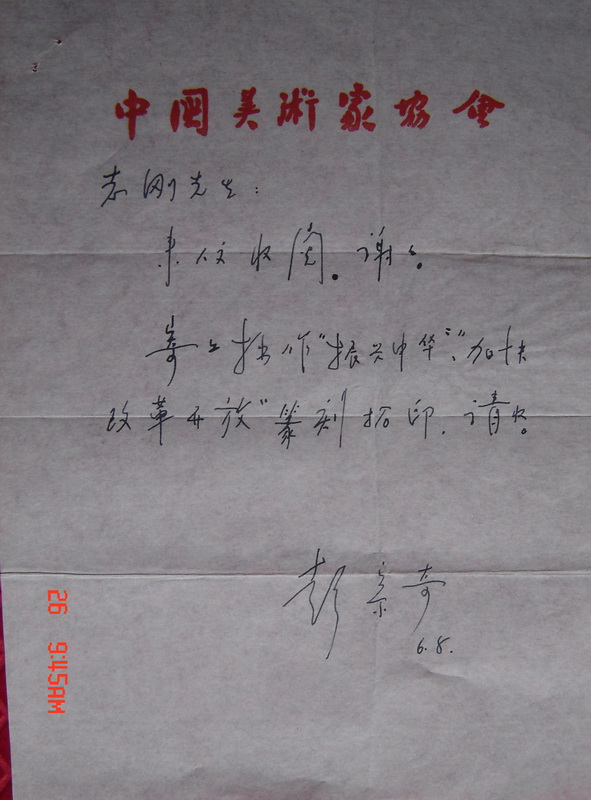 中国美術家协会
志刚先生：
来信收阅。谢谢。
寄上拙作“振兴中华”、“加快
改革开放”篆刻拓印，请收。
彭宗奇
6.8.
26 9:45AM